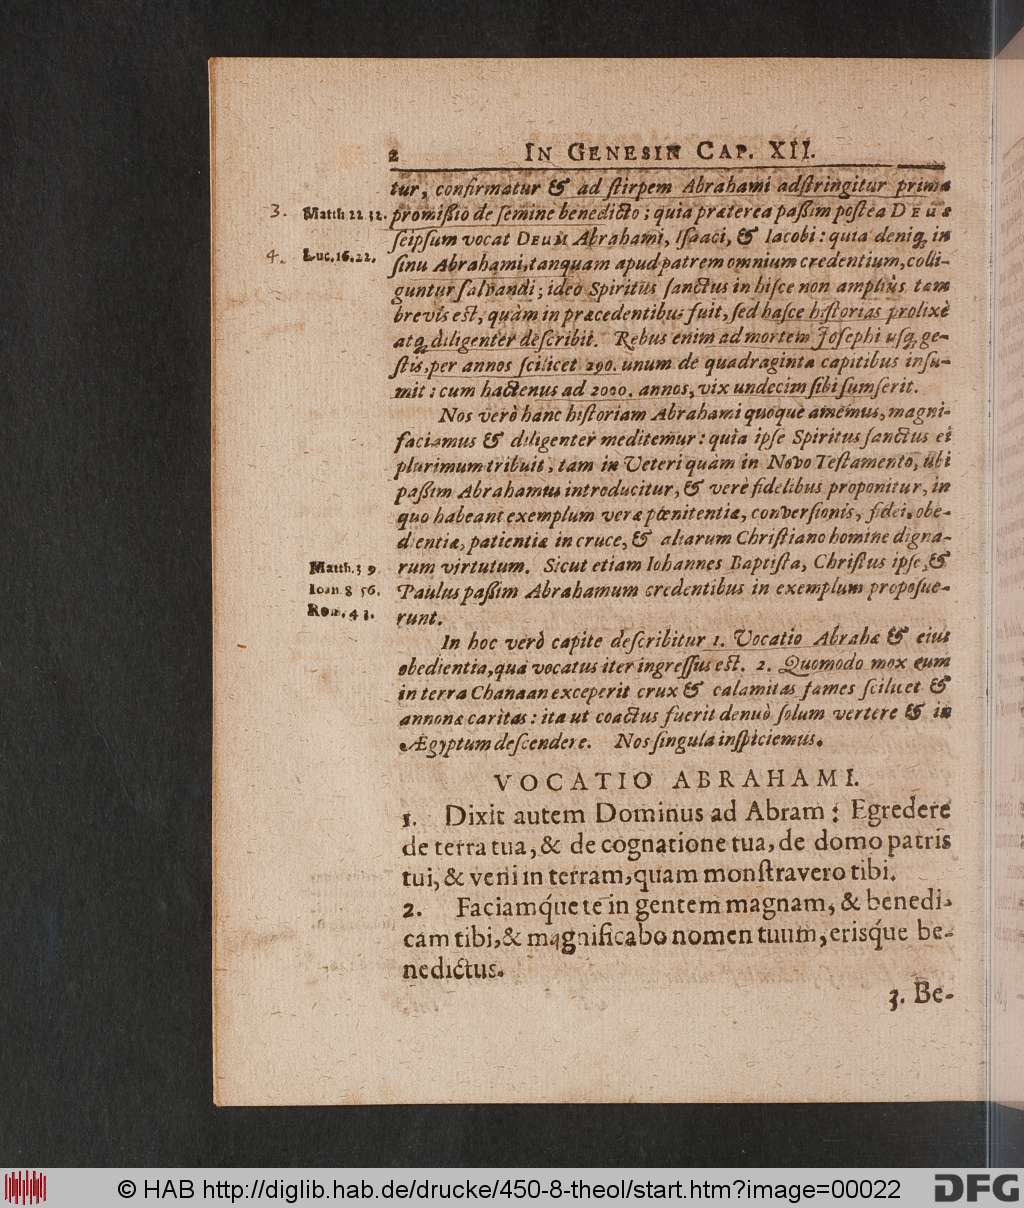 2 IN GENESIN CAP. XII.
tur, confirmatur & ad ſtirpem Abrahami adſtringitur prima
3. Matth. 22. 32. promißio de ſemine benedicto; quia præterea paßim poſtea DEUS
ſeipſum vocat DEUM Abrahami, Iſaaci, & Iacobi: quia deniq́; in
4. Luc. 16. 22. ſinu Abrahami, tanquam apud patrem omnium credentium, colli-
guntur ſalvandi; ideo Spiritus ſanctus in hiſce non ampliùs tam
brevis eſt, quàm in præcedentibus fuit, ſed haſce hiſtorias prolixè
atq́; diligenter deſcribit. Rebus enim ad mortem Joſephi uſq́; ge-
ſtis, per annos ſcilicet 290. unum de quadraginta capitibus inſu-
mit: cum hactenus ad 2000. annos, vix undecim ſibi ſumſerit.
Nos verò hanc hiſtoriam Abrahami quoque amemus, magni-
faciamus & diligenter meditemur: quia ipſe Spiritus ſanctus ei
plurimum tribuit, tam in Veteri quàm in Novo Teſtamento, ubi
paßim Abrahamus introducitur, & verè fidelibus proponitur, in
quo habeant exemplum veræ pœnitentiæ, converſionis, fidei, obe-
dientiæ, patientiæ in cruce, & aliarum Chriſtiano homine digna-
Matth. 3 9. rum virtutum. Sicut etiam Iohannes Baptiſta, Chriſtus ipſe, &
Ioan. 8 56. Paulus paßim Abrahamum credentibus in exemplum propoſue-
Rom. 4 3. runt.
In hoc verò capite deſcribitur 1. Vocatio Abrahæ & eius
obedientia, qua vocatus iter ingreſſus eſt. 2. Quomodo mox eum
in terra Chanaan exceperit crux & calamitas fames ſcilicet &
annonæ caritas: ita ut coactus fuerit denuò ſolum vertere & in
Ægyptum deſcendere. Nos ſingula inſpiciemus.
VOCATIO ABRAHAMI.
1. Dixit autem Dominus ad Abram: Egredere
de terra tua, & de cognatione tua, de domo patris
tui, & veni in terram, quam monſtravero tibi.
2. Faciamq́ue te in gentem magnam, & benedi-
cam tibi, & magnificabo nomen tuum, erisq́ue be-
nedictus.
3. Be-
© HAB http://diglib.hab.de/drucke/450-8-theol/start.htm?image=00022
DFG